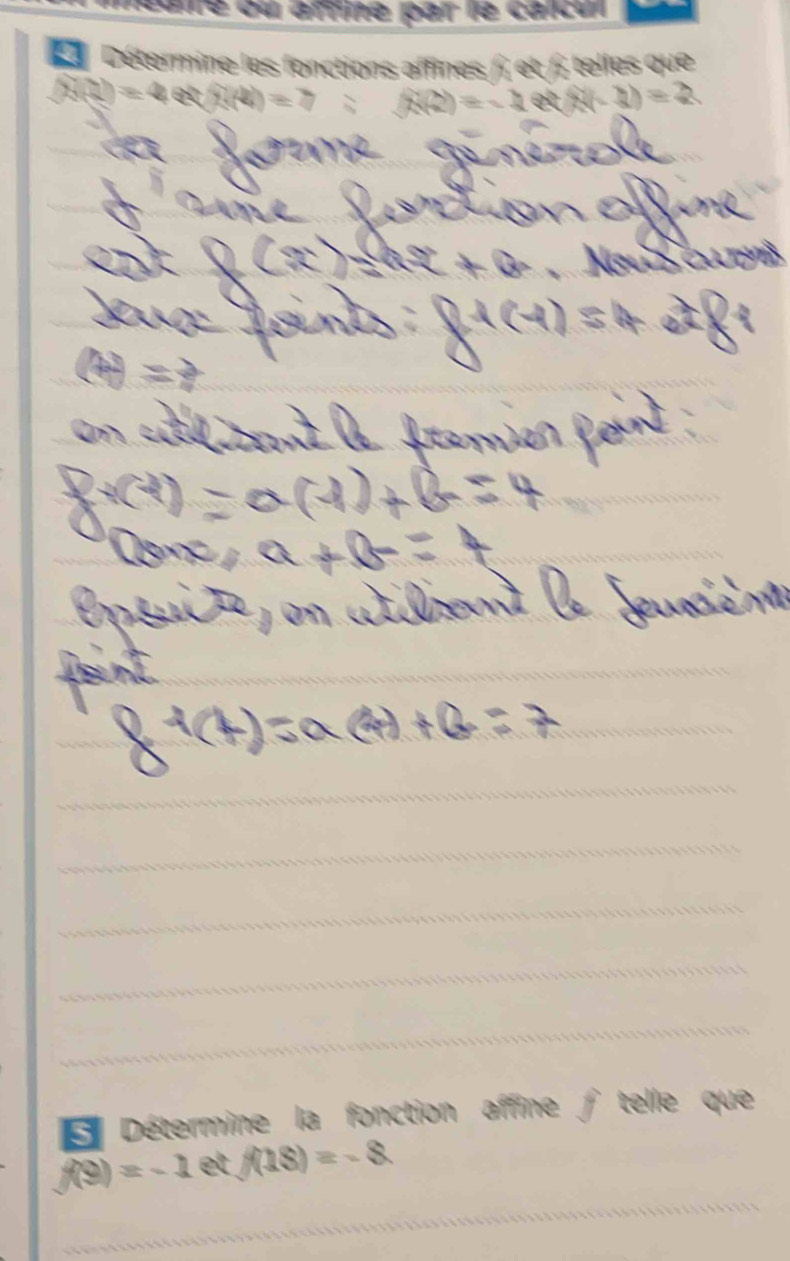 ou affine par le calcul
4 Détermine les fonctions affines f₁ et f₂ telles que
f₁(1) = 4 et f₁(4) = 7 ; f₂(2) = - 1 et f₂(- 1) = 2.
La forme générale
d'une fonction affine
est f(x)=ax + b. Nous avons
deux points: f1(1) = 4 et f1
(4) = 7
en utilisant le premier point:
f1(1) = a(1)+b = 4
Donc, a+b = 4
ensuite, en utilisant le deuxième
point
f1(4)=a(4)+b=7
5 Détermine la fonction affine f telle que
f(9) = - 1 et f(18) = - 8.